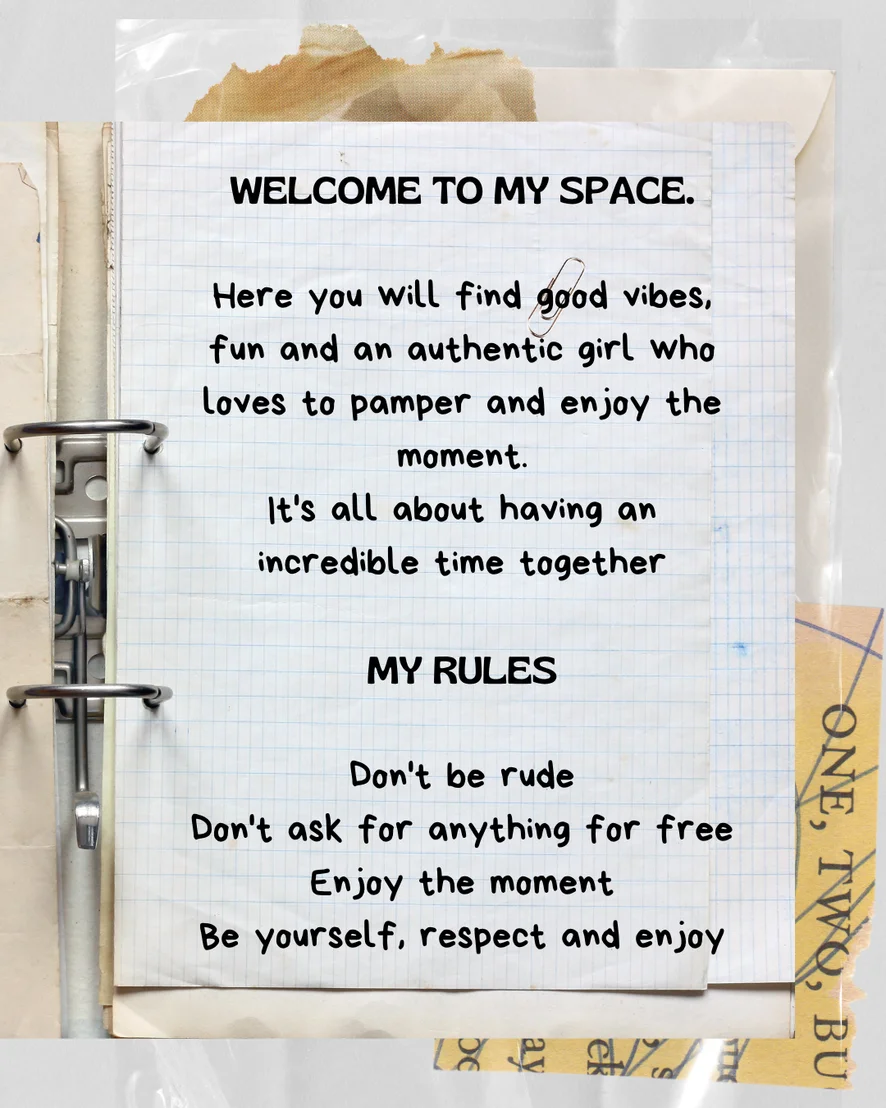 WELCOME TO MY SPACE.
Here you will find good vibes,
fun and an authentic girl who
loves to pamper and enjoy the
moment.
It's all about having an
incredible time together
MY RULES
Don't be rude
Don't ask for anything for free
Enjoy the moment
Be yourself, respect and enjoy
ONE, TWO, BU